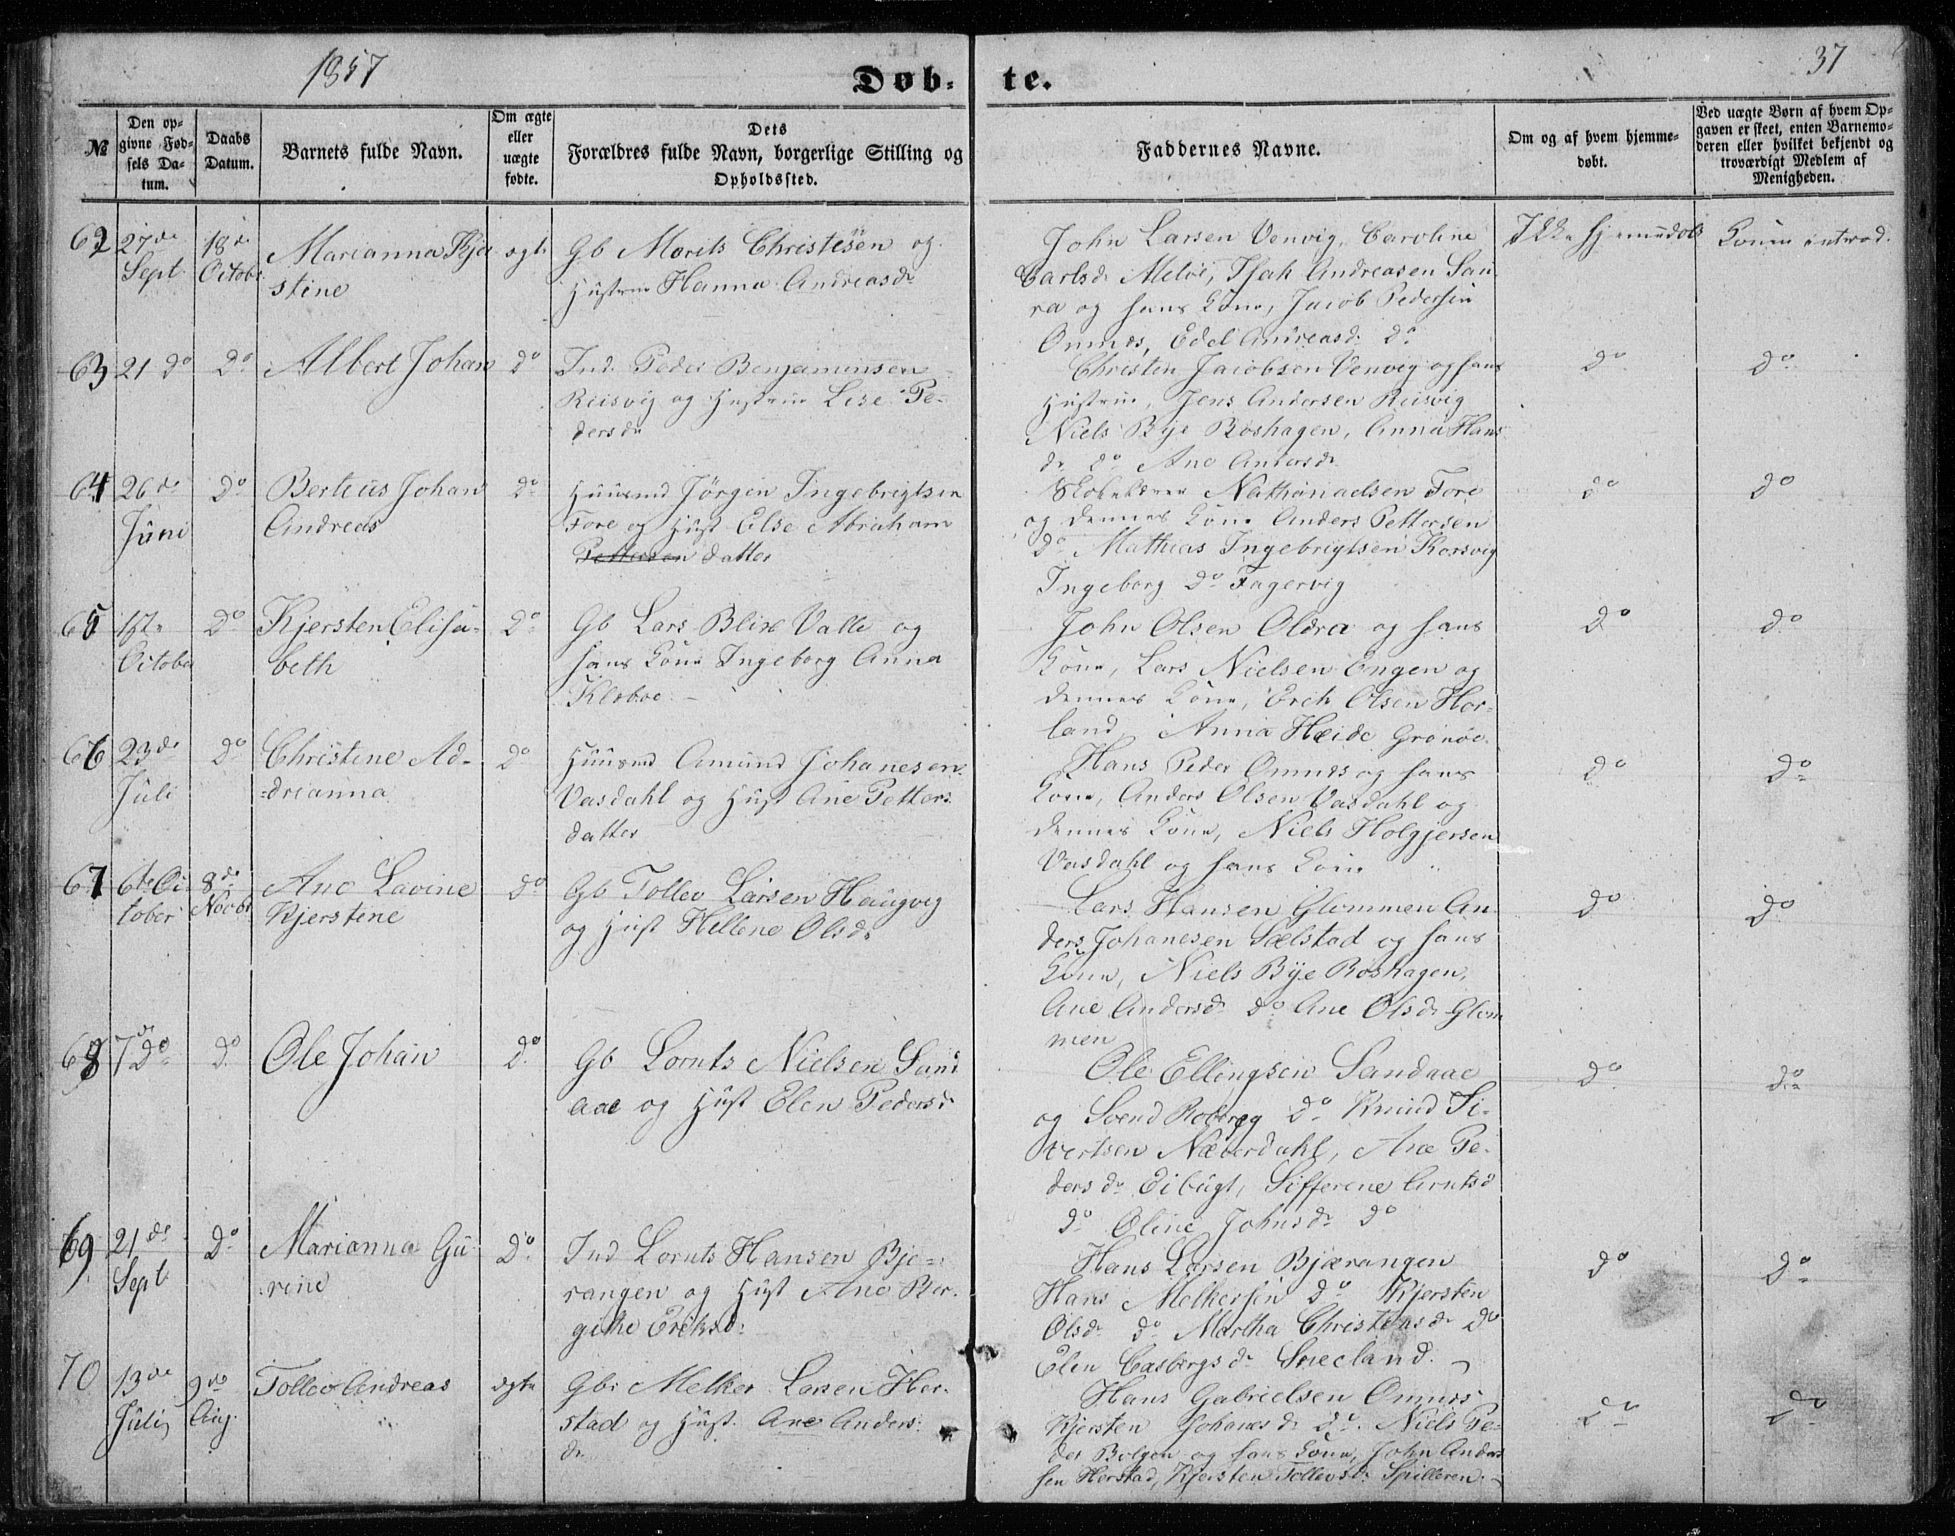 1857
37
Døb-
te.
№
Den op-
givne Fød-
sels Da-
tum.
Daabs
Datum.
Barnets fulde Navn.
Om ægte
eller
uægte
fødte.
Dets
Forældres fulde Navn, borgerlige Stilling og
Opholdssted.
Faddernes Navne.
Om og af hvem hjemme-
døbt.
Ved uægte Børn af hvem Op-
gaven er skeet, enten Barnemo-
deren eller hvilket bekjendt og
troværdigt Medlem af
Menigheden.
62
27de
Sept
18de
Octobr
Marianna Kje
stine
ægte
Gb Morits Christesen og
Hustrue Hanna Andreasdr
John Larsen Venvig, Caroline
Carlsdr Meløi, Isak Andreasen San
ra og hans Kone, Jacob Pedersen
Onnes, Edel Andreasdr do
Ikke hjemmedøbt
Konen introd.
63
21 do
do
Albert Johan
do
Ind. Peder Benjaminsen
Reisvig og Hustrue Lise Pe-
dersdr
Christen Jacobsen Venvig og hans
Hustrue, Jens Andersen Reisvig
Niels Bye Roshagen, Anna Hans
dr do Ane Andersdr
do
do
64
26de
Juni
do
Berteus Johan
Andreas
do
Huusmd Jørgen Ingebrigtsen
Fore og Hust Else Abraham
Pettersen datter
Nathanaelsen Fore
og dennes Kone Anders Pettersen
do Mathias Ingebrigtsen Korsvig
Ingeborg do Fagervig
do
do
65
1ste
October
do
Kjersten Elisa-
beth
do
Gb Lars Blix Valle og
hans Kone Ingeborg Anna
Klæboe
John Olsen Oldra og hans
Kone, Lars Nielsen Engen og
dennes Kone, Erch Olsen Hor-
land, Anna Heide Grønøe
do
do
66
23de
Juli
do
Christine Ad-
drianna
do
Huusmd Amund Johanesen
Vasdahl og Hust Ane Petters
datter
Hans Peder Onnes og hans
Kone, Anders Olsen Vasdahl og
dennes Kone, Niels Holgjersen
Vasdahl og hans Kone
do
do
67
6te Oc
tober
8de
Novbr
Ane Lavine
Kjerstine
do
Gb Tollev Larsen Haugvig
og Hust Hellene Olsdr
Lars Hansen Glommen An
ders Johanesen Sælstad og hans
Kone, Niels Bye Roshagen,
Ane Andersdr do Ane Olsdr Glom
men
do
do
68
7de do
do
Ole Johan
do
Gb Lornts Nielsen Sand
aae og Hust Elen Pedersdr
Ole Ellingsen Sandaae
og Svend Roberg do Knud Si-
vertsen Næverdahl, Ane Pe-
dersdr Eibugt, Sifferene Arntsd
do Oline Johnsdr do
do
do
69
21de
Sept
do
Marianna Gu
rine
do
Ind Lornts Hansen Bje-
rangen og Hust Ane Ber-
githe Eriksdr
Hans Larsen Bjærangen
Hans Melkersen do Kjersten
Olsdr do Martha Christensdr do
Elen Casbergsdr Sneeland.
do
do
70
13de
Juli
9de
Aug.
Tollev Andreas
ægte
Gbr Melker Larsen Hor-
stad og Hust. Ane Anders-
dr
Hans Gabrielsen Onnes
Kjersten Johanesdr do. Niels Pe-
der Bolgen og hans Kone, John Ander
sen Horstad, Kjersten Tollevsdr Spilderen.
do
do